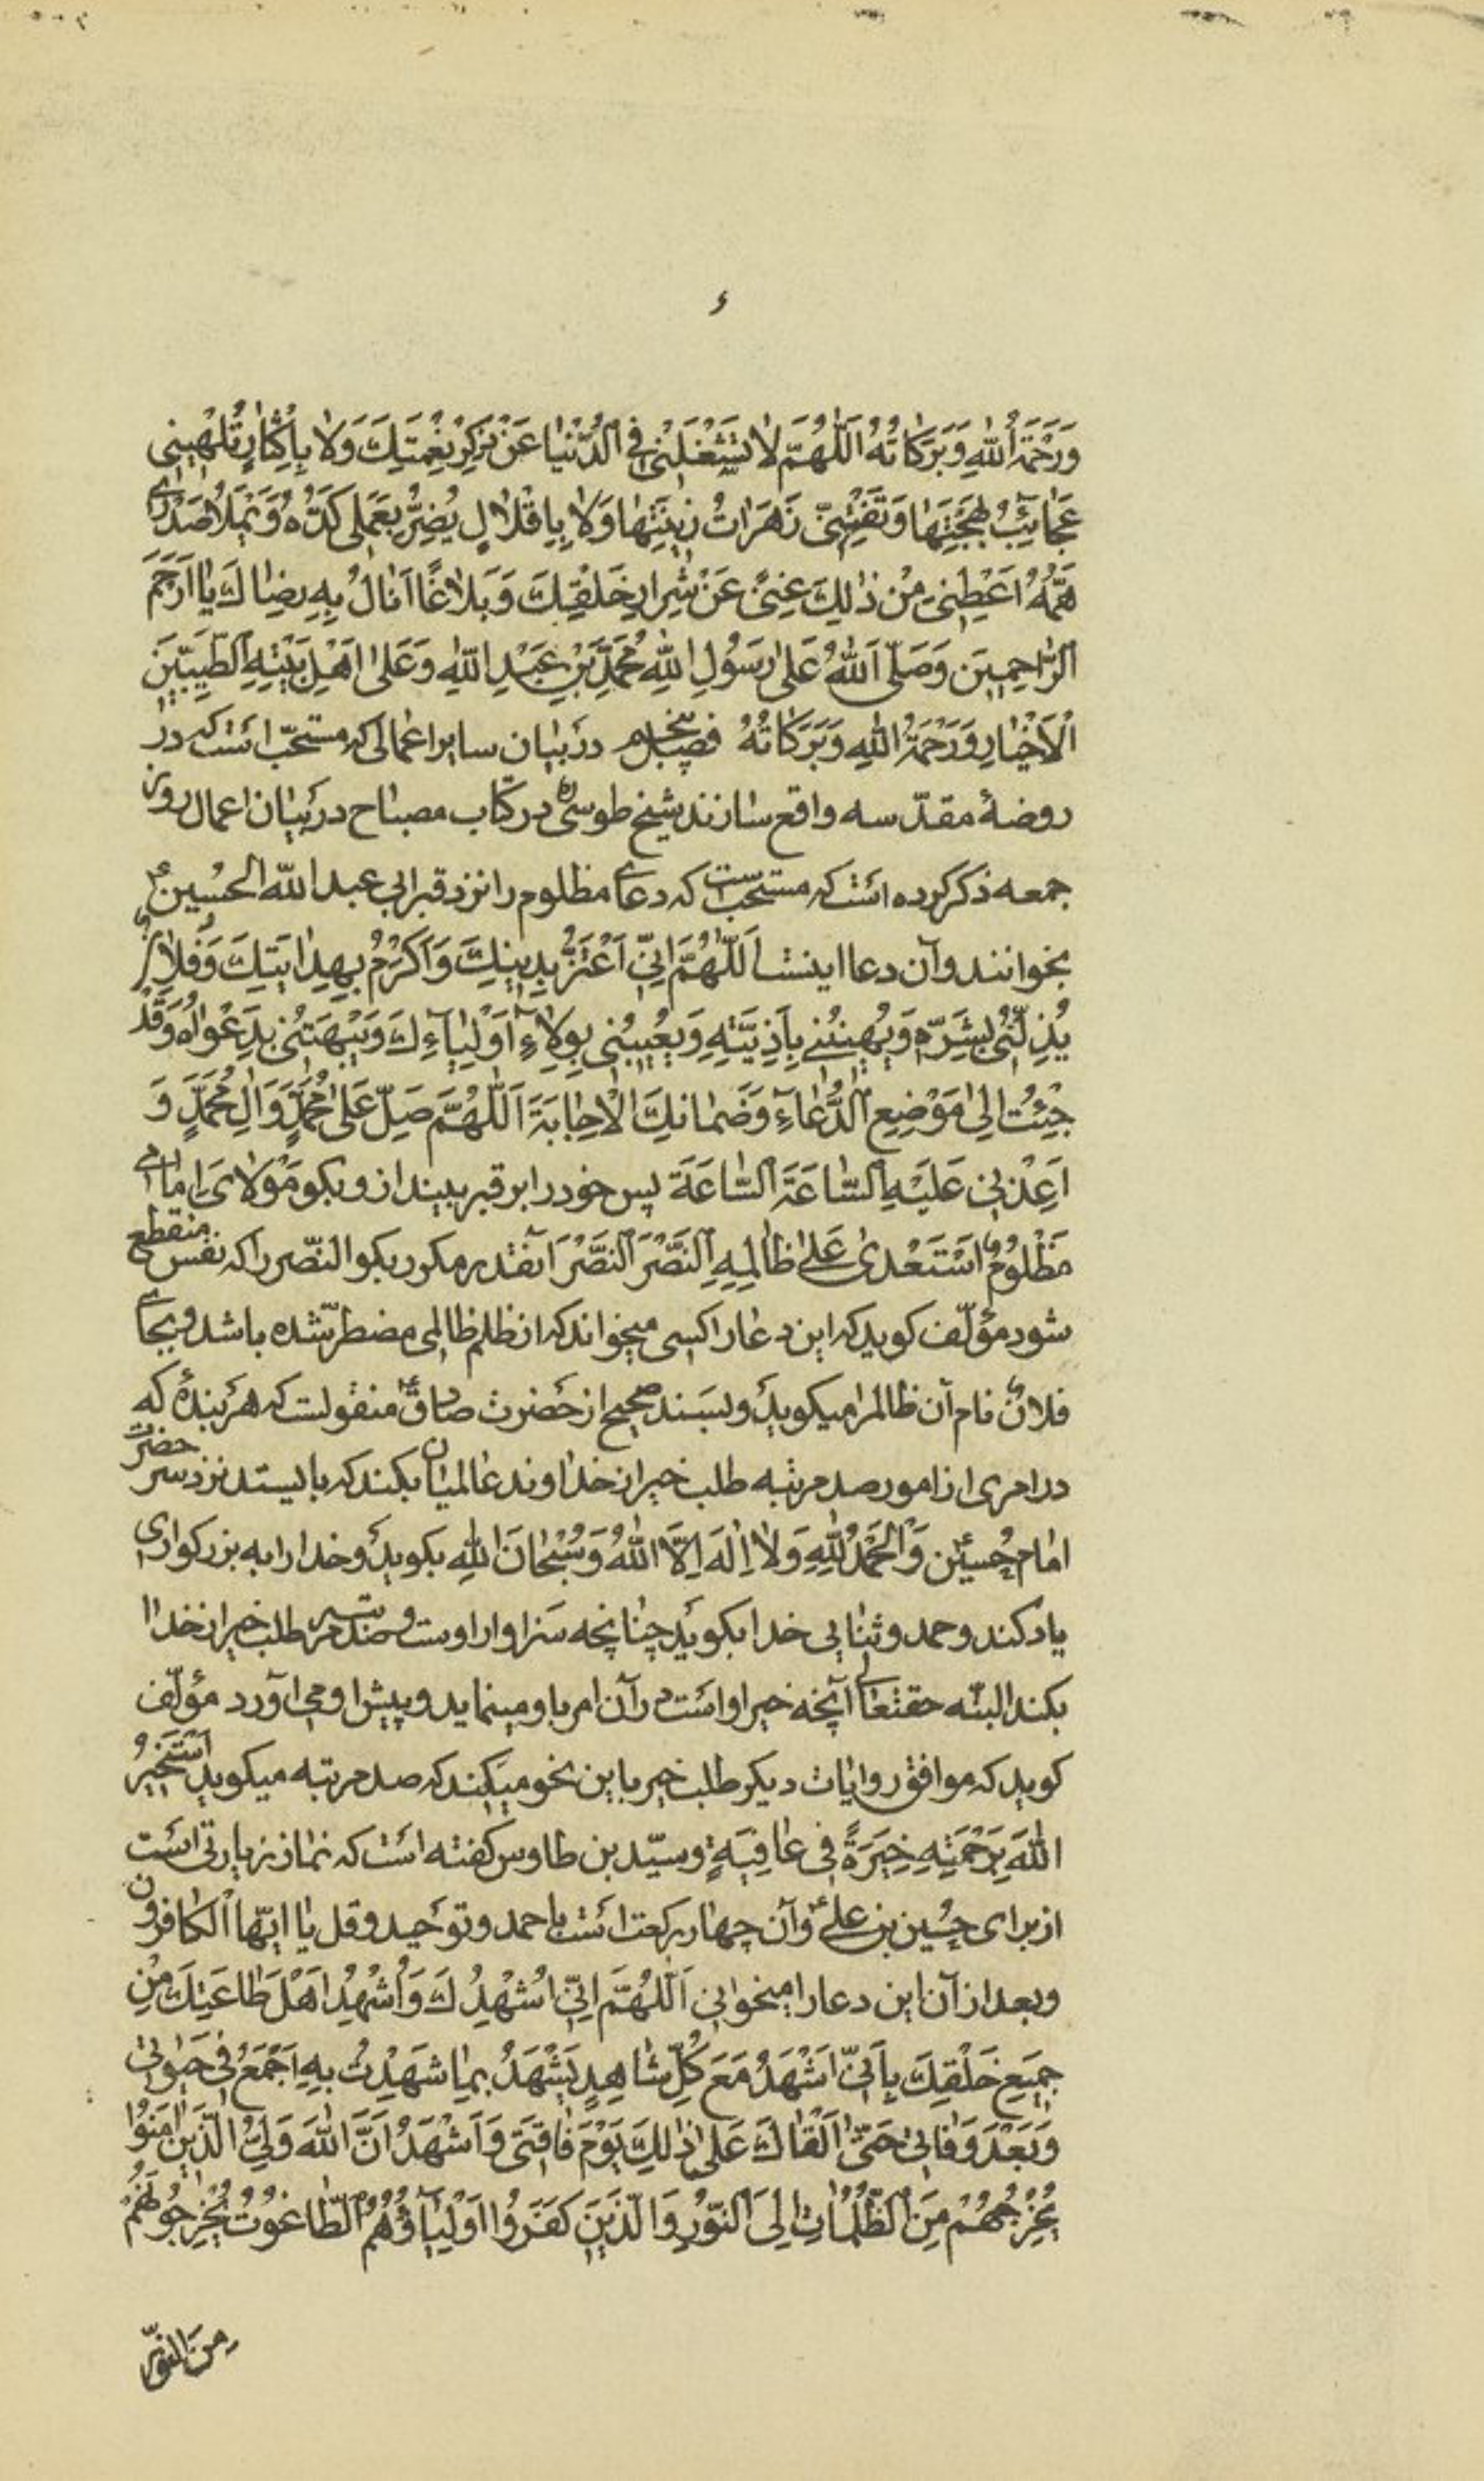 ء
وَرَحْمَةُ اللهِ وَبَرَكَاتُهُ اَللّٰهُمَّ لَا تَشْغَلْنِى فِى الدُّنْيَا عَنْ ذِكْرِ نِعْمَتِكَ وَلَا بِاِكْثَارٍ تُلْهِيْنِى
عَجَائِبُ بَهْجَتِهَا وَتَفْتِنُنِى زَهَرَاتُ زِيْنَتِهَا وَلَا بِاِقْلَالٍ يُضِرُّ بِعَمَلِى كَدُّهُ وَيَمْلَأُ صَدْرِى
هَمُّهُ اَعْطِنِى مِنْ ذٰلِكَ غِنًى عَنْ شِرَارِ خَلْقِكَ وَبَلَاغًا اَنَالُ بِهِ رِضَاكَ يَا اَرْحَمَ
الرَّاحِمِيْنَ وَصَلَّى اللهُ عَلٰى رَسُوْلِ اللهِ مُحَمَّدِ بْنِ عَبْدِ اللهِ وَعَلٰى اَهْلِ بَيْتِهِ الطَّيِّبِيْنَ
الْاَخْيَارِ وَرَحْمَةُ اللهِ وَبَرَكَاتُهُ فصل پنجم در بيان ساير اعمالى كه مستحبّ است كه در
روضهٔ مقدّسه واقع سازند شيخ طوسىؒ در كتاب مصباح در بيان اعمال روز
جمعه ذكر كرده است كه مستحبّ است كه دعاى مظلوم را نزد قبر ابى عبد الله الحسينؑ
بخوانند و آن دعا اينست اَللّٰهُمَّ اِنِّى اَعْتَزُّ بِدِيْنِكَ وَاَكْرُمُ بِهِدَايَتِكَ وَفُلَانٌ
يُذِلُّنِى بِشَرِّهِ وَيُهِيْنُنِى بِاَذِيَّتِهِ وَيُعِيْبُنِى بِوِلَاءِ اَوْلِيَاءِكَ وَيَبْهَتُنِى بِدَعْوَاهُ وَقَدْ
جِئْتُ اِلٰى مَوْضِعِ الدُّعَاءِ وَضَمَانِكَ الْاِجَابَةَ اَللّٰهُمَّ صَلِّ عَلٰى مُحَمَّدٍ وَاٰلِ مُحَمَّدٍ وَ
اَعِدْنِى عَلَيْهِ السَّاعَةَ السَّاعَةَ پس خود را بر قبر بينداز و بكو مَوْلَاىَ اِمَامِى
مَظْلُوْمٌ اسْتَعْدٰى عَلٰى ظَالِمِهِ النَّصْرَ النَّصْرَ آنقدر مكرر بكو النّصر را كه نفس منقطع
شود مؤلّف كويد كه اين دعا را كسى ميخواند كه از ظلم ظالمى مضطر شده باشد و بجاى
فلانٌ نام آن ظالم را ميكويد و بسند صحيح از حضرت صادقؑ منقولست كه هر بندهٔ كه
در امرى از امور صد مرتبه طلب خير از خداوند عالميان بكند كه بايستد نزد سر حضرت
امام حسينؑ وَالْحَمْدُ لِلّٰهِ وَلَا اِلٰهَ اِلَّا اللهُ وَسُبْحَانَ اللهِ بكويد و خدا را به بزركوارى
ياد كند و حمد و ثنايى خدا بكويد چنانچه سزاوار اوست و صد مرتبه طلب خير از خدا
بكند البته حقتعالى آنچه خير او است در آن امر باو مينمايد و پيش او مى آورد مؤلّف
كويد كه موافق روايات ديكر طلب خير باين نحو ميكند كه صد مرتبه ميكويد اَسْتَخِيْرُ
اللهَ بِرَحْمَتِهِ خِيَرَةً فِى عَافِيَةٍ و سيّد بن طاوس كفته است كه نماز زيارتى است
از براى حسين بن علىؑ و آن چهار ركعت است با حمد و توحيد و قل يا ايّها الكافرون
و بعد از آن اين دعا را ميخوانى اَللّٰهُمَّ اِنِّى اُشْهِدُكَ وَاُشْهِدُ اَهْلَ طَاعَتِكَ مِنْ
جَمِيْعِ خَلْقِكَ بِاَنِّى اَشْهَدُ مَعَ كُلِّ شَاهِدٍ يَشْهَدُ بِمَا شَهِدْتُ بِهِ اَجْمَعُ فِى حَيٰوتِى
وَبَعْدَ وَفَاتِى حَتّٰى اَلْقَاكَ عَلٰى ذٰلِكَ يَوْمَ فَاقَتِى وَاَشْهَدُ اَنَّ اللهَ وَلِىُّ الَّذِيْنَ اٰمَنُوْا
يُخْرِجُهُمْ مِنَ الظُّلُمَاتِ اِلَى النُّوْرِ وَالَّذِيْنَ كَفَرُوْا اَوْلِيَاؤُهُمُ الطَّاغُوْتُ يُخْرِجُوْنَهُمْ
مِنَ النُّوْرِ